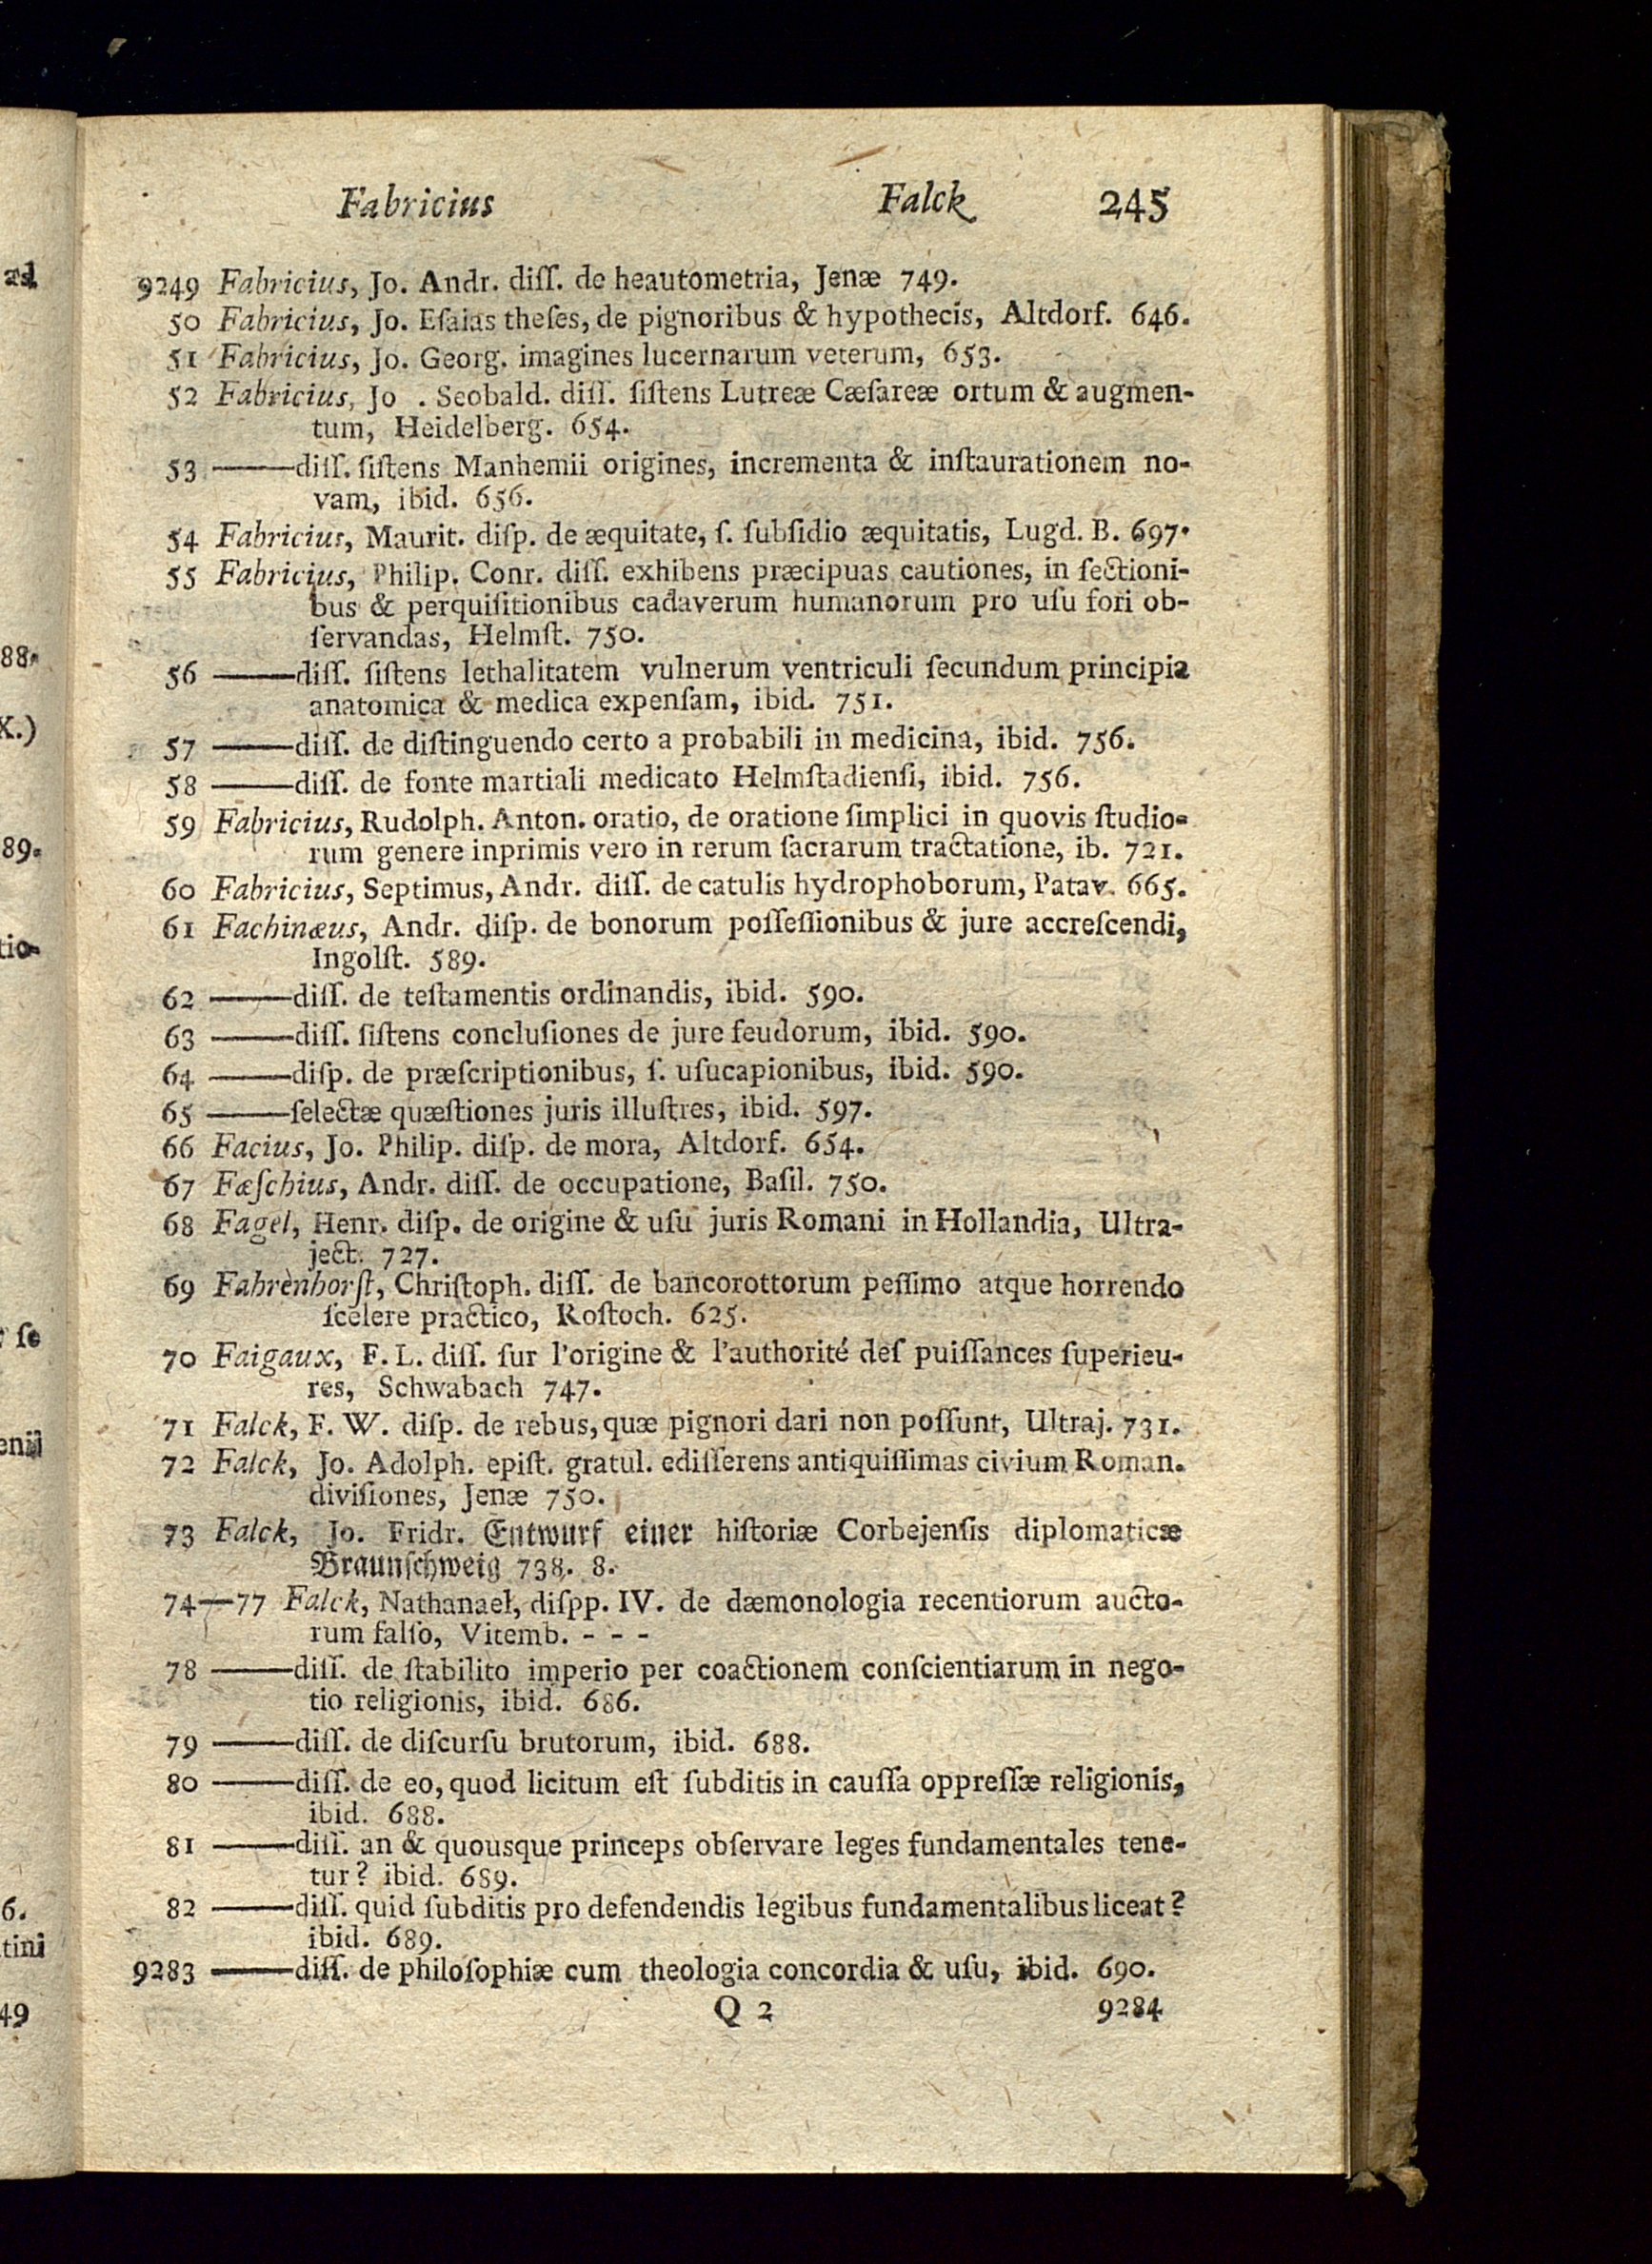 Fabricius Falck 245
9249 Fabricius, Jo. Andr. diſſ. de heautometria, Jenæ 749.
50 Fabricius, Jo. Eſaias theſes, de pignoribus & hypothecis, Altdorf. 646.
51 Fabricius, Jo. Georg. imagines lucernarum veterum, 653.
52 Fabricius, Jo . Seobald. diſſ. ſiſtens Lutreæ Cæſareæ ortum & augmen-
tum, Heidelberg. 654.
53 ——diſſ. ſiſtens Manhemii origines, incrementa & inſtaurationem no-
vam, ibid. 656.
54 Fabricius, Maurit. diſp. de æquitate, ſ. ſubſidio æquitatis, Lugd. B. 697.
55 Fabricius, Philip. Conr. diſſ. exhibens præcipuas cautiones, in ſectioni-
bus & perquiſitionibus cadaverum humanorum pro uſu fori ob-
ſervandas, Helmſt. 750.
56 ——diſſ. ſiſtens lethalitatem vulnerum ventriculi ſecundum principia
anatomica & medica expenſam, ibid. 751.
57 ——diſſ. de diſtinguendo certo a probabili in medicina, ibid. 756.
58 ——diſſ. de fonte martiali medicato Helmſtadienſi, ibid. 756.
59 Fabricius, Rudolph. Anton. oratio, de oratione ſimplici in quovis ſtudio-
rum genere inprimis vero in rerum ſacrarum tractatione, ib. 721.
60 Fabricius, Septimus, Andr. diſſ. de catulis hydrophoborum, Patav. 665.
61 Fachinæus, Andr. diſp. de bonorum poſſeſſionibus & jure accreſcendi,
Ingolſt. 589.
62 ——diſſ. de teſtamentis ordinandis, ibid. 590.
63 ——diſſ. ſiſtens concluſiones de jure feudorum, ibid. 590.
64 ——diſp. de præſcriptionibus, ſ. uſucapionibus, ibid. 590.
65 ——ſelectæ quæſtiones juris illuſtres, ibid. 597.
66 Facius, Jo. Philip. diſp. de mora, Altdorf. 654.
67 Fæſchius, Andr. diſſ. de occupatione, Baſil. 750.
68 Fagel, Henr. diſp. de origine & uſu juris Romani in Hollandia, Ultra-
ject. 727.
69 Fahrenhorſt, Chriſtoph. diſſ. de bancorottorum peſſimo atque horrendo
ſcelere practico, Roſtoch. 625.
70 Faigaux, F. L. diſſ. ſur l'origine & l'authorité deſ puiſſances ſuperieu-
res, Schwabach 747.
71 Falck, F. W. diſp. de rebus, quæ pignori dari non poſſunt, Ultraj. 731.
72 Falck, Jo. Adolph. epiſt. gratul. ediſſerens antiquiſſimas civium Roman.
diviſiones, Jenæ 750.
73 Falck, Jo. Fridr. Entwurf einer hiſtoriæ Corbejenſis diplomaticæ
Braunſchweig 738. 8.
74—77 Falck, Nathanael, diſpp. IV. de dæmonologia recentiorum aucto-
rum falſo, Vitemb. - - -
78 ——diſſ. de ſtabilito imperio per coactionem conſcientiarum in nego-
tio religionis, ibid. 686.
79 ——diſſ. de diſcurſu brutorum, ibid. 688.
80 ——diſſ. de eo, quod licitum eſt ſubditis in cauſſa oppreſſæ religionis,
ibid. 688.
81 ——diſſ. an & quousque princeps obſervare leges fundamentales tene-
tur? ibid. 689.
82 ——diſſ. quid ſubditis pro defendendis legibus fundamentalibus liceat?
ibid. 689.
9283 ——diſſ. de philoſophiæ cum theologia concordia & uſu, ibid. 690.
Q 2 9284